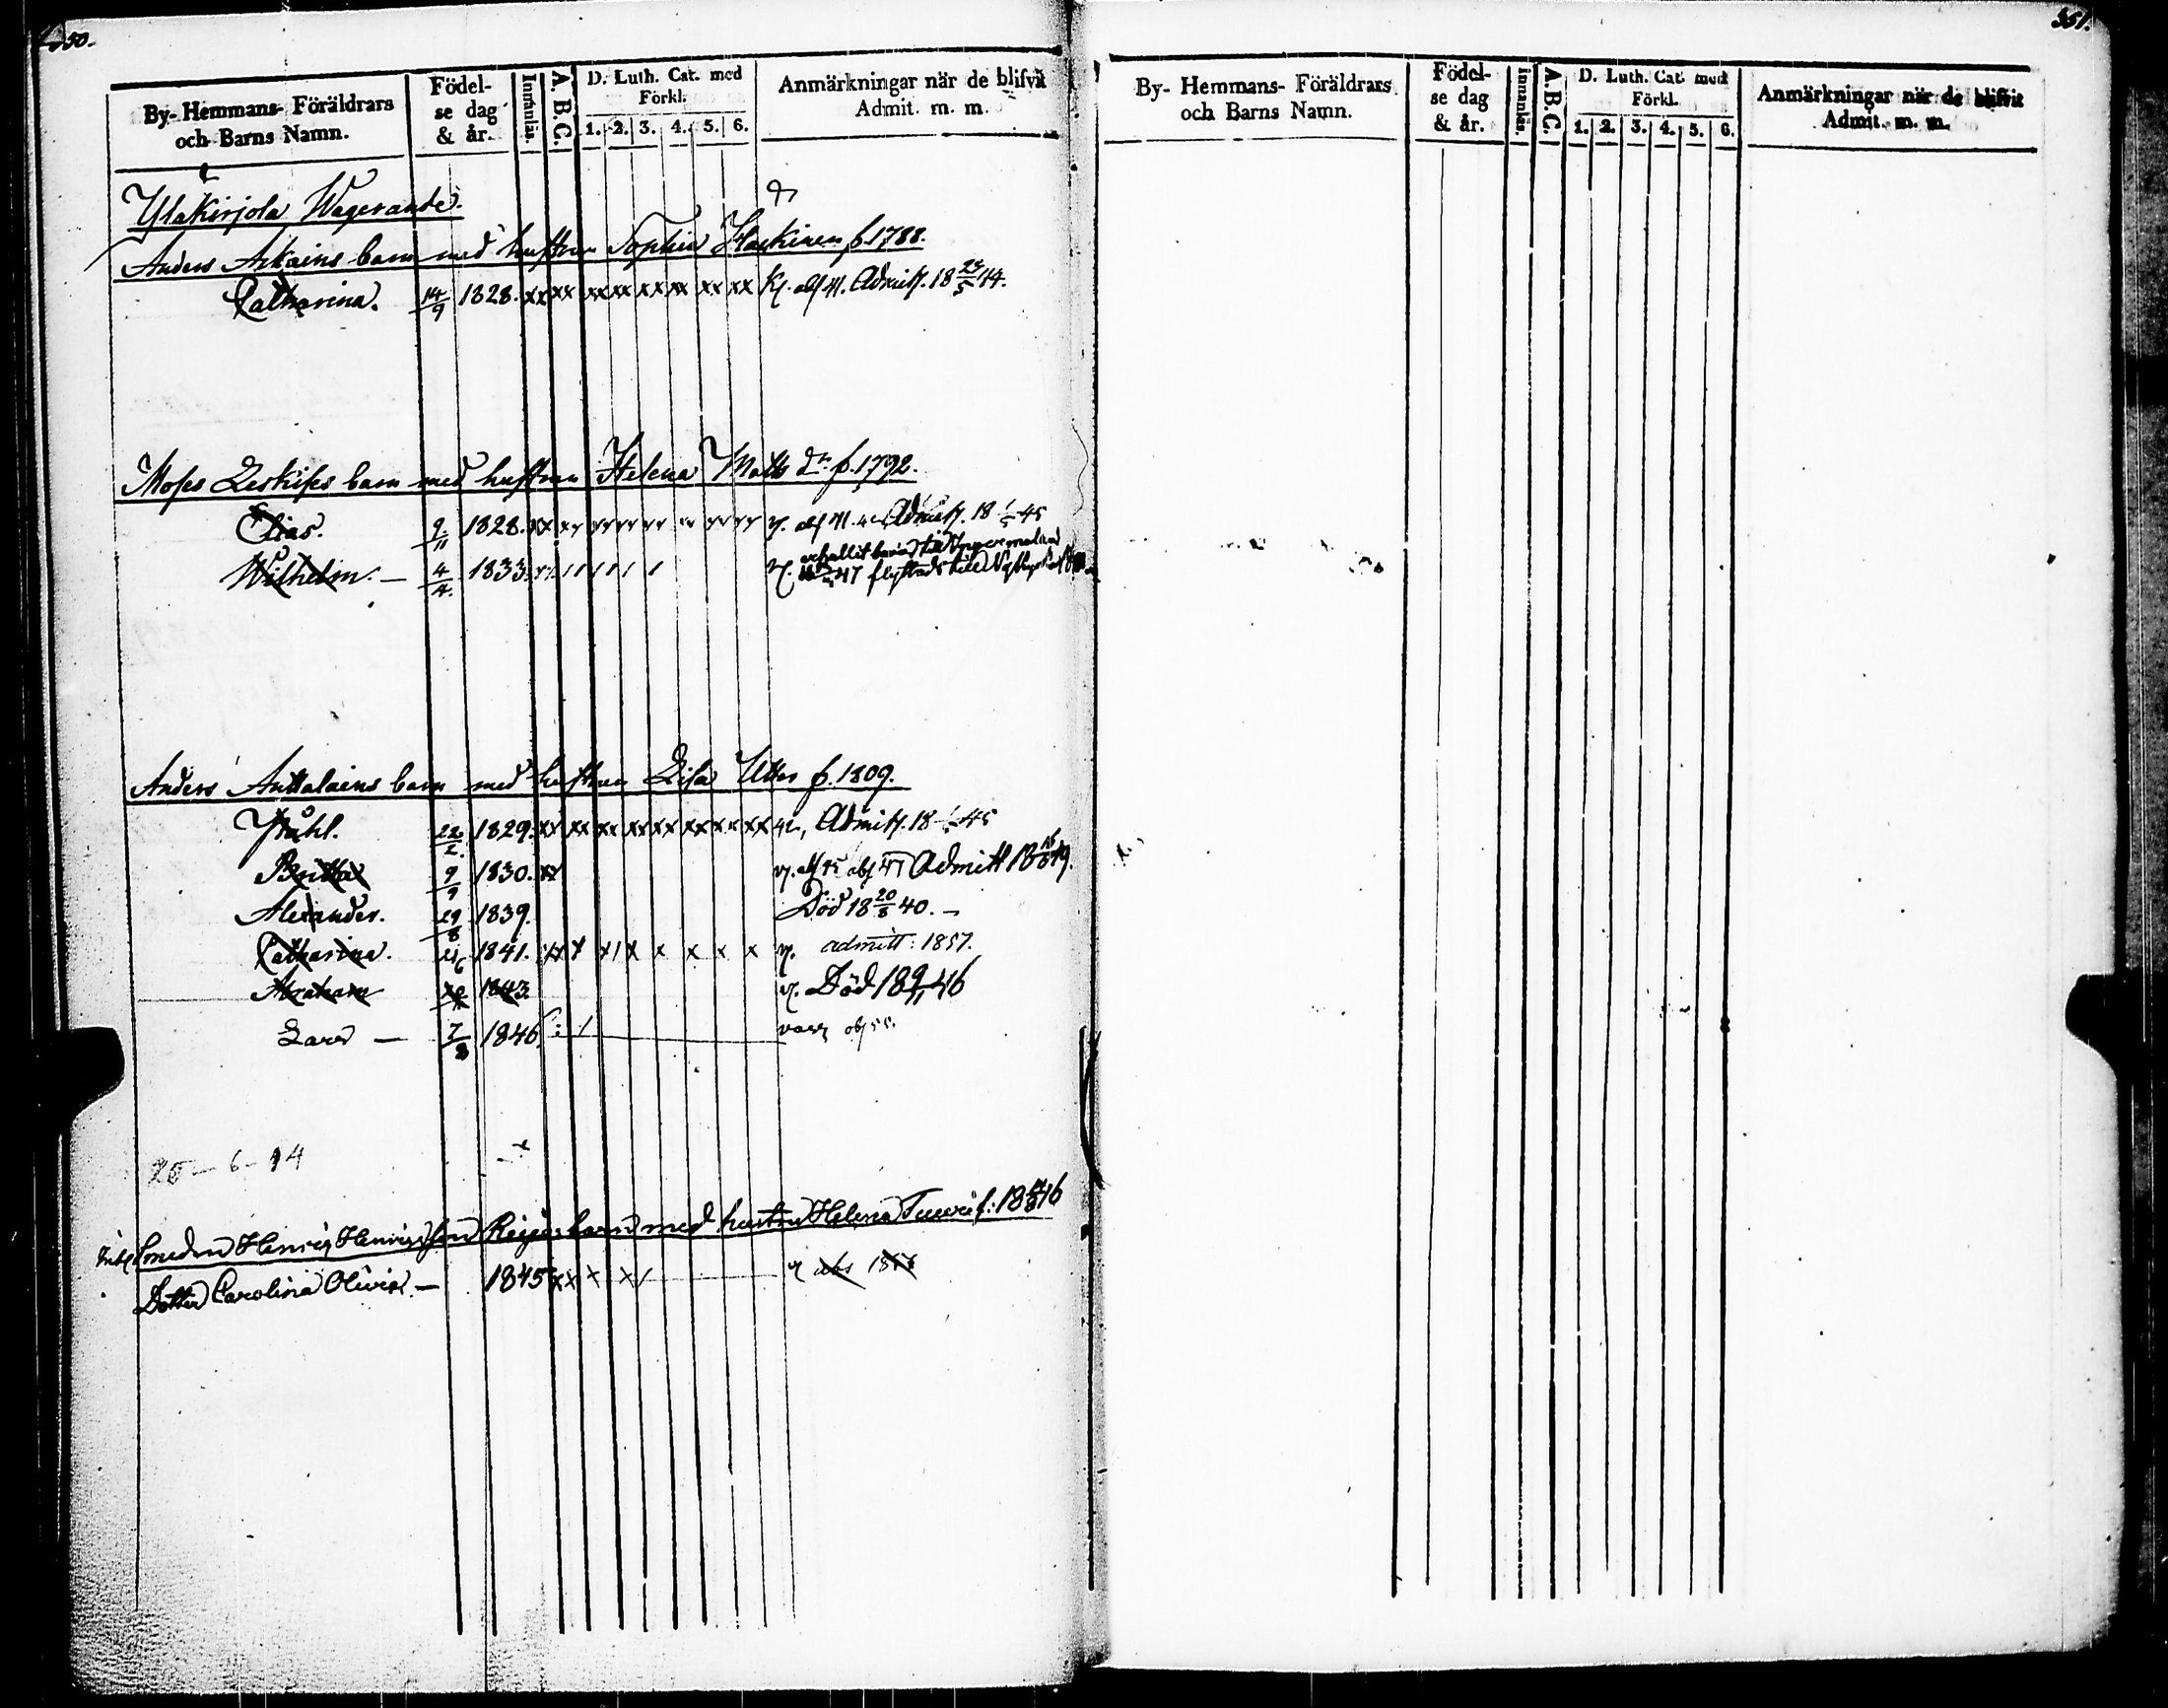 50.
By- Hemmans- Föräldrars
och Barns Namn.
Födel-
se dag
& år.
Innanläs.
A. B. C.
D. Luth. Cat. med
Förkl.
1. 2. 3. 4. 5. 6.
Anmärkningar när de blifvit
Admit. m. m.
Yläkirjola Wagerande.
Anders Askains barn med hustrun Sophia f. 1788.
Catharina. 14/9 1828. xx xx xx xx xx xx xx xx abs 41. Admitt. 18 25/5 44.
Moses Leskises barn med hustrun Helena Matts dr. f. 1792.
Elias. 9/11 1828. abs 41. 42 Admitt. 18 45
Wilhelm. — 4/4. 1833. 47 flyttad till
Anders Anttalains barn med hustrun Lisa Utter f. 1809.
Påhl. 22/2. 1829. xx xx xx xx xx xx xx xx 42, Admitt. 18 45
Britta 9/9 1830. xx abs 45 abs 47 Admitt 18 49.
Alexander. 29/8 1839. Död 18 20/8 40. —
Catharina. 1841. xx x x x x x x x admitt: 1857.
Abraham 1843. Död 18 9/11 46
Lars — 7/8 1846. abs 55.
20 - 6 - 14
Smeden Henric Henricsson barn med hustru Helena
Dotter Carolina Olivia. — 1845 xx x x/ abs
351.
By- Hemmans- Föräldrars
och Barns Namn.
Födel-
se dag
& år.
Innanläs.
A. B. C.
D. Luth. Cat. med
Förkl.
1. 2. 3. 4. 5. 6.
Anmärkningar när de blifvit
Admit. m. m.